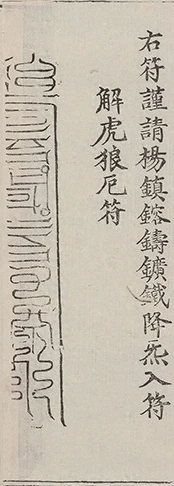 右符謹請楊鎮鎔鑄鑛鐵降炁入符
解虎狼厄符